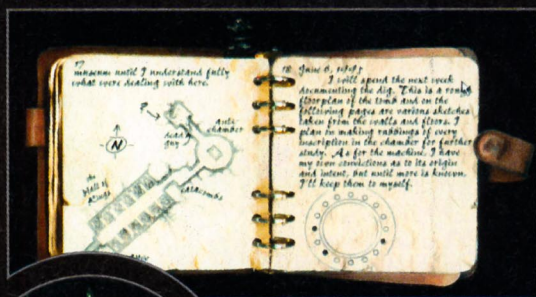 17
museum until I understand fully
what were dealing with here.
?
anti
chamber
dead
guy
N
the
Hall of
Kings
catacombs
18 June 6,
I will spend the next week
documenting the dig. This is a rough
floorplan of the tomb and on the
following pages are various sketches
taken from the walls and floors. I
plan on making rubbings of every
inscription in the chamber for further
study. As for the machine, I have
my own convictions as to its origin
and intent, but until more is known,
I'll keep them to myself.